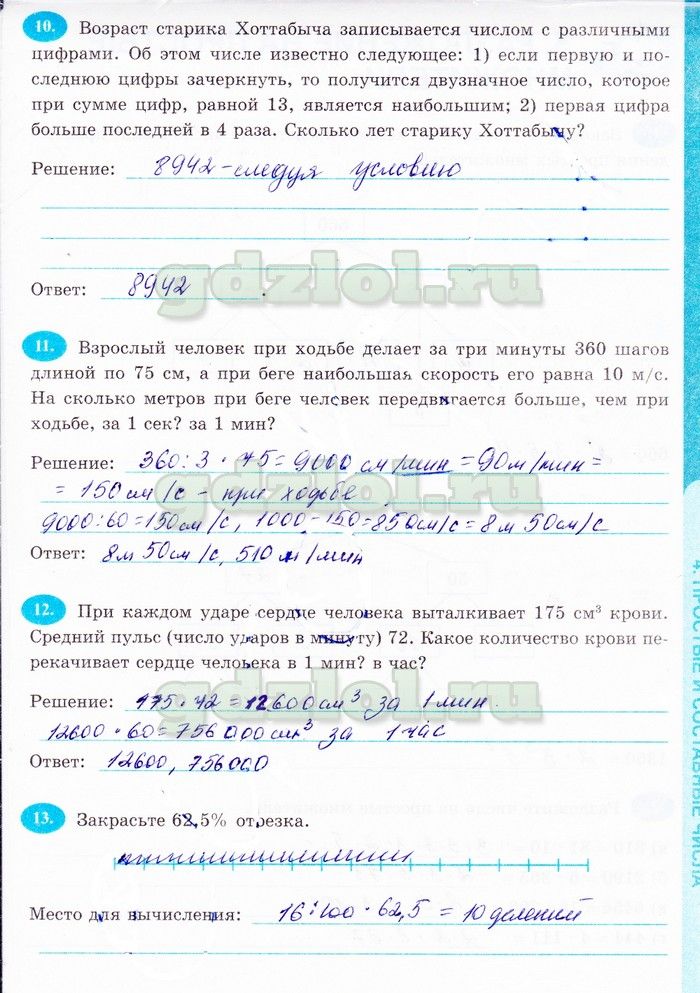 10. Возраст старика Хоттабыча записывается числом с различными
цифрами. Об этом числе известно следующее: 1) если первую и по-
следнюю цифры зачеркнуть, то получится двузначное число, которое
при сумме цифр, равной 13, является наибольшим; 2) первая цифра
больше последней в 4 раза. Сколько лет старику Хоттабычу?
Решение: 8942 - следуя условию
gdzlol.ru
Ответ: 8942.
11. Взрослый человек при ходьбе делает за три минуты 360 шагов
длиной по 75 см, а при беге наибольшая скорость его равна 10 м/с.
На сколько метров при беге человек передвигается больше, чем при
ходьбе, за 1 сек? за 1 мин?
Решение: 360:3·75=9000 см/мин=90м/мин=
=150см/с - при ходьбе
9000:60=150см/с, 1000-150=850см/с=8м 50см/с
Ответ: 8м 50см/с, 510м/мин
12. При каждом ударе сердце человека выталкивает 175 см³ крови.
Средний пульс (число ударов в минуту) 72. Какое количество крови пе-
рекачивает сердце человека в 1 мин? в час?
Решение: 175·72=12600см³ за 1 мин.
gdzlol.ru
12600·60=756000см³ за 1 час
Ответ: 12600, 756000
13. Закрасьте 62,5% отрезка.
Место для вычисления: 16:100·62,5=10 делений
4. ПРОСТЫЕ И СОСТАВНЫЕ ЧИСЛА